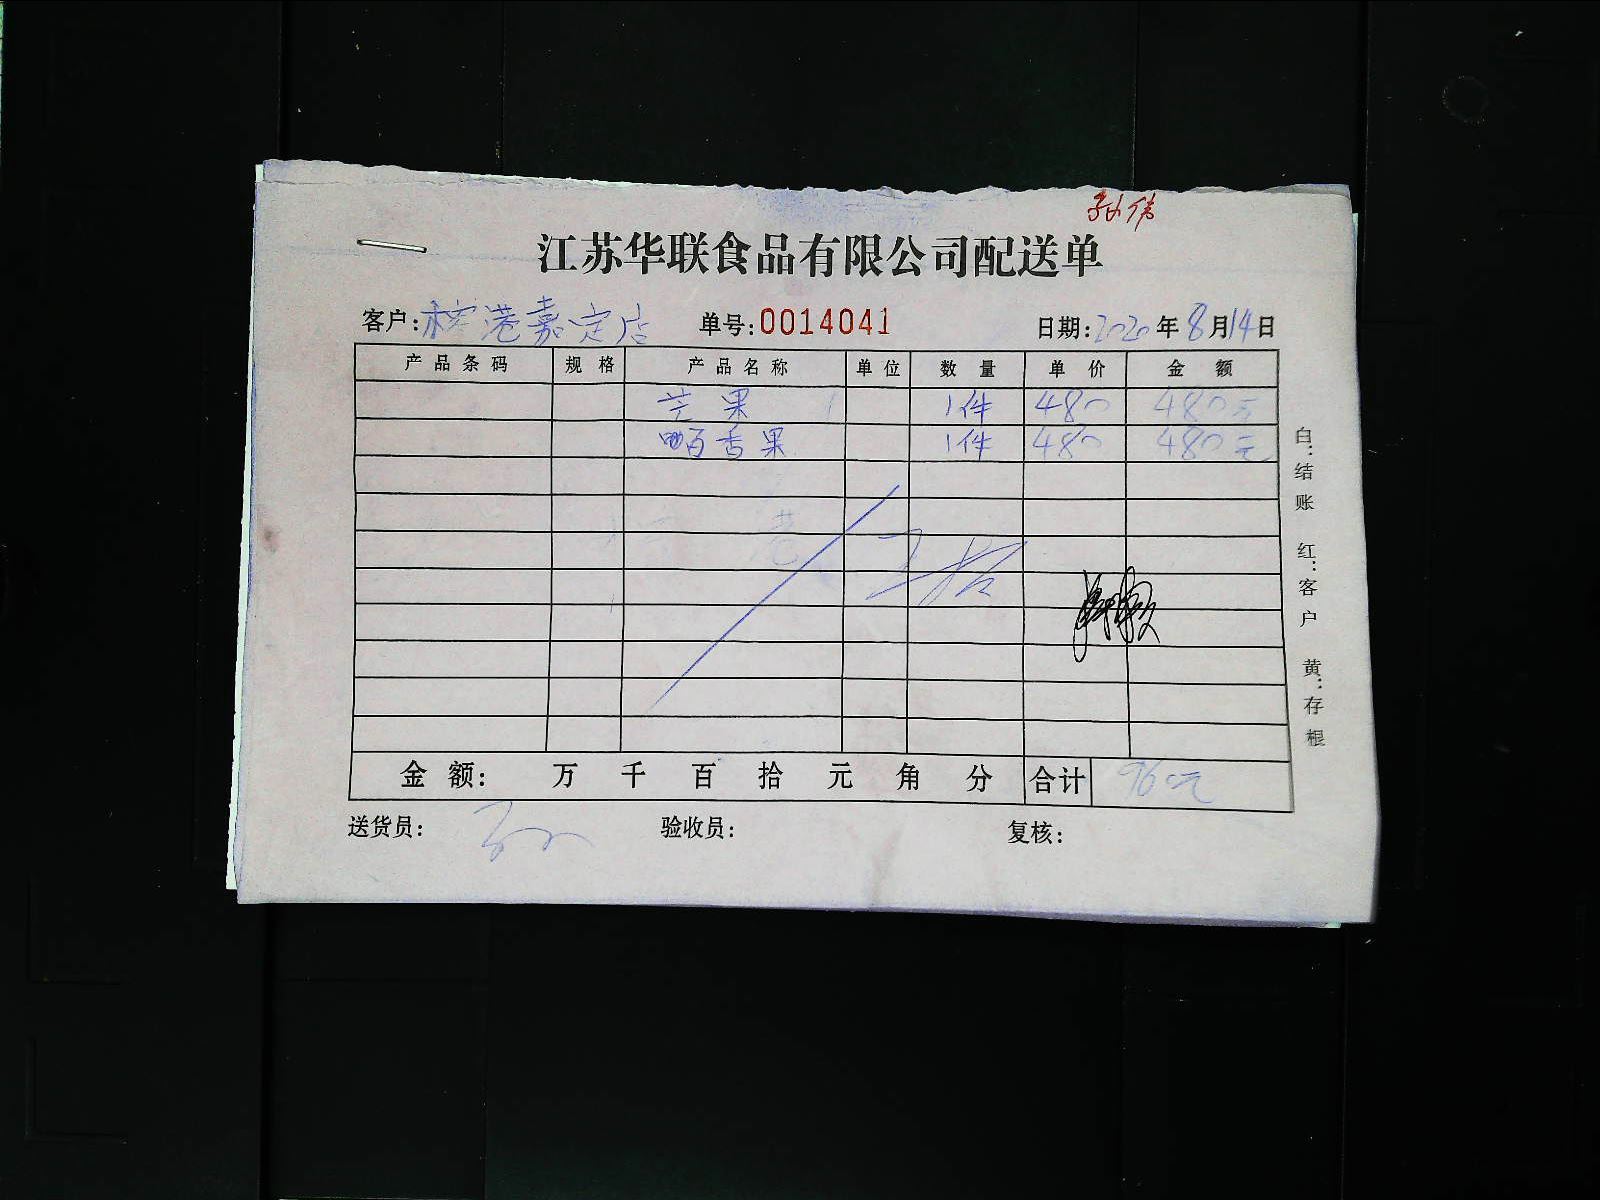 孙伟
江苏华联食品有限公司配送单
客户: 港嘉定店 单号:0014041 日期:2020年8月14日
产品条码 规格 产品名称 单位 数量 单价 金额
芒果 1件 480 480元
百香果 1件 480 480元
金额: 万 千 百 拾 元 角 分 合计 960元
送货员: 验收员: 复核:
白:结账 红:客户 黄:存根